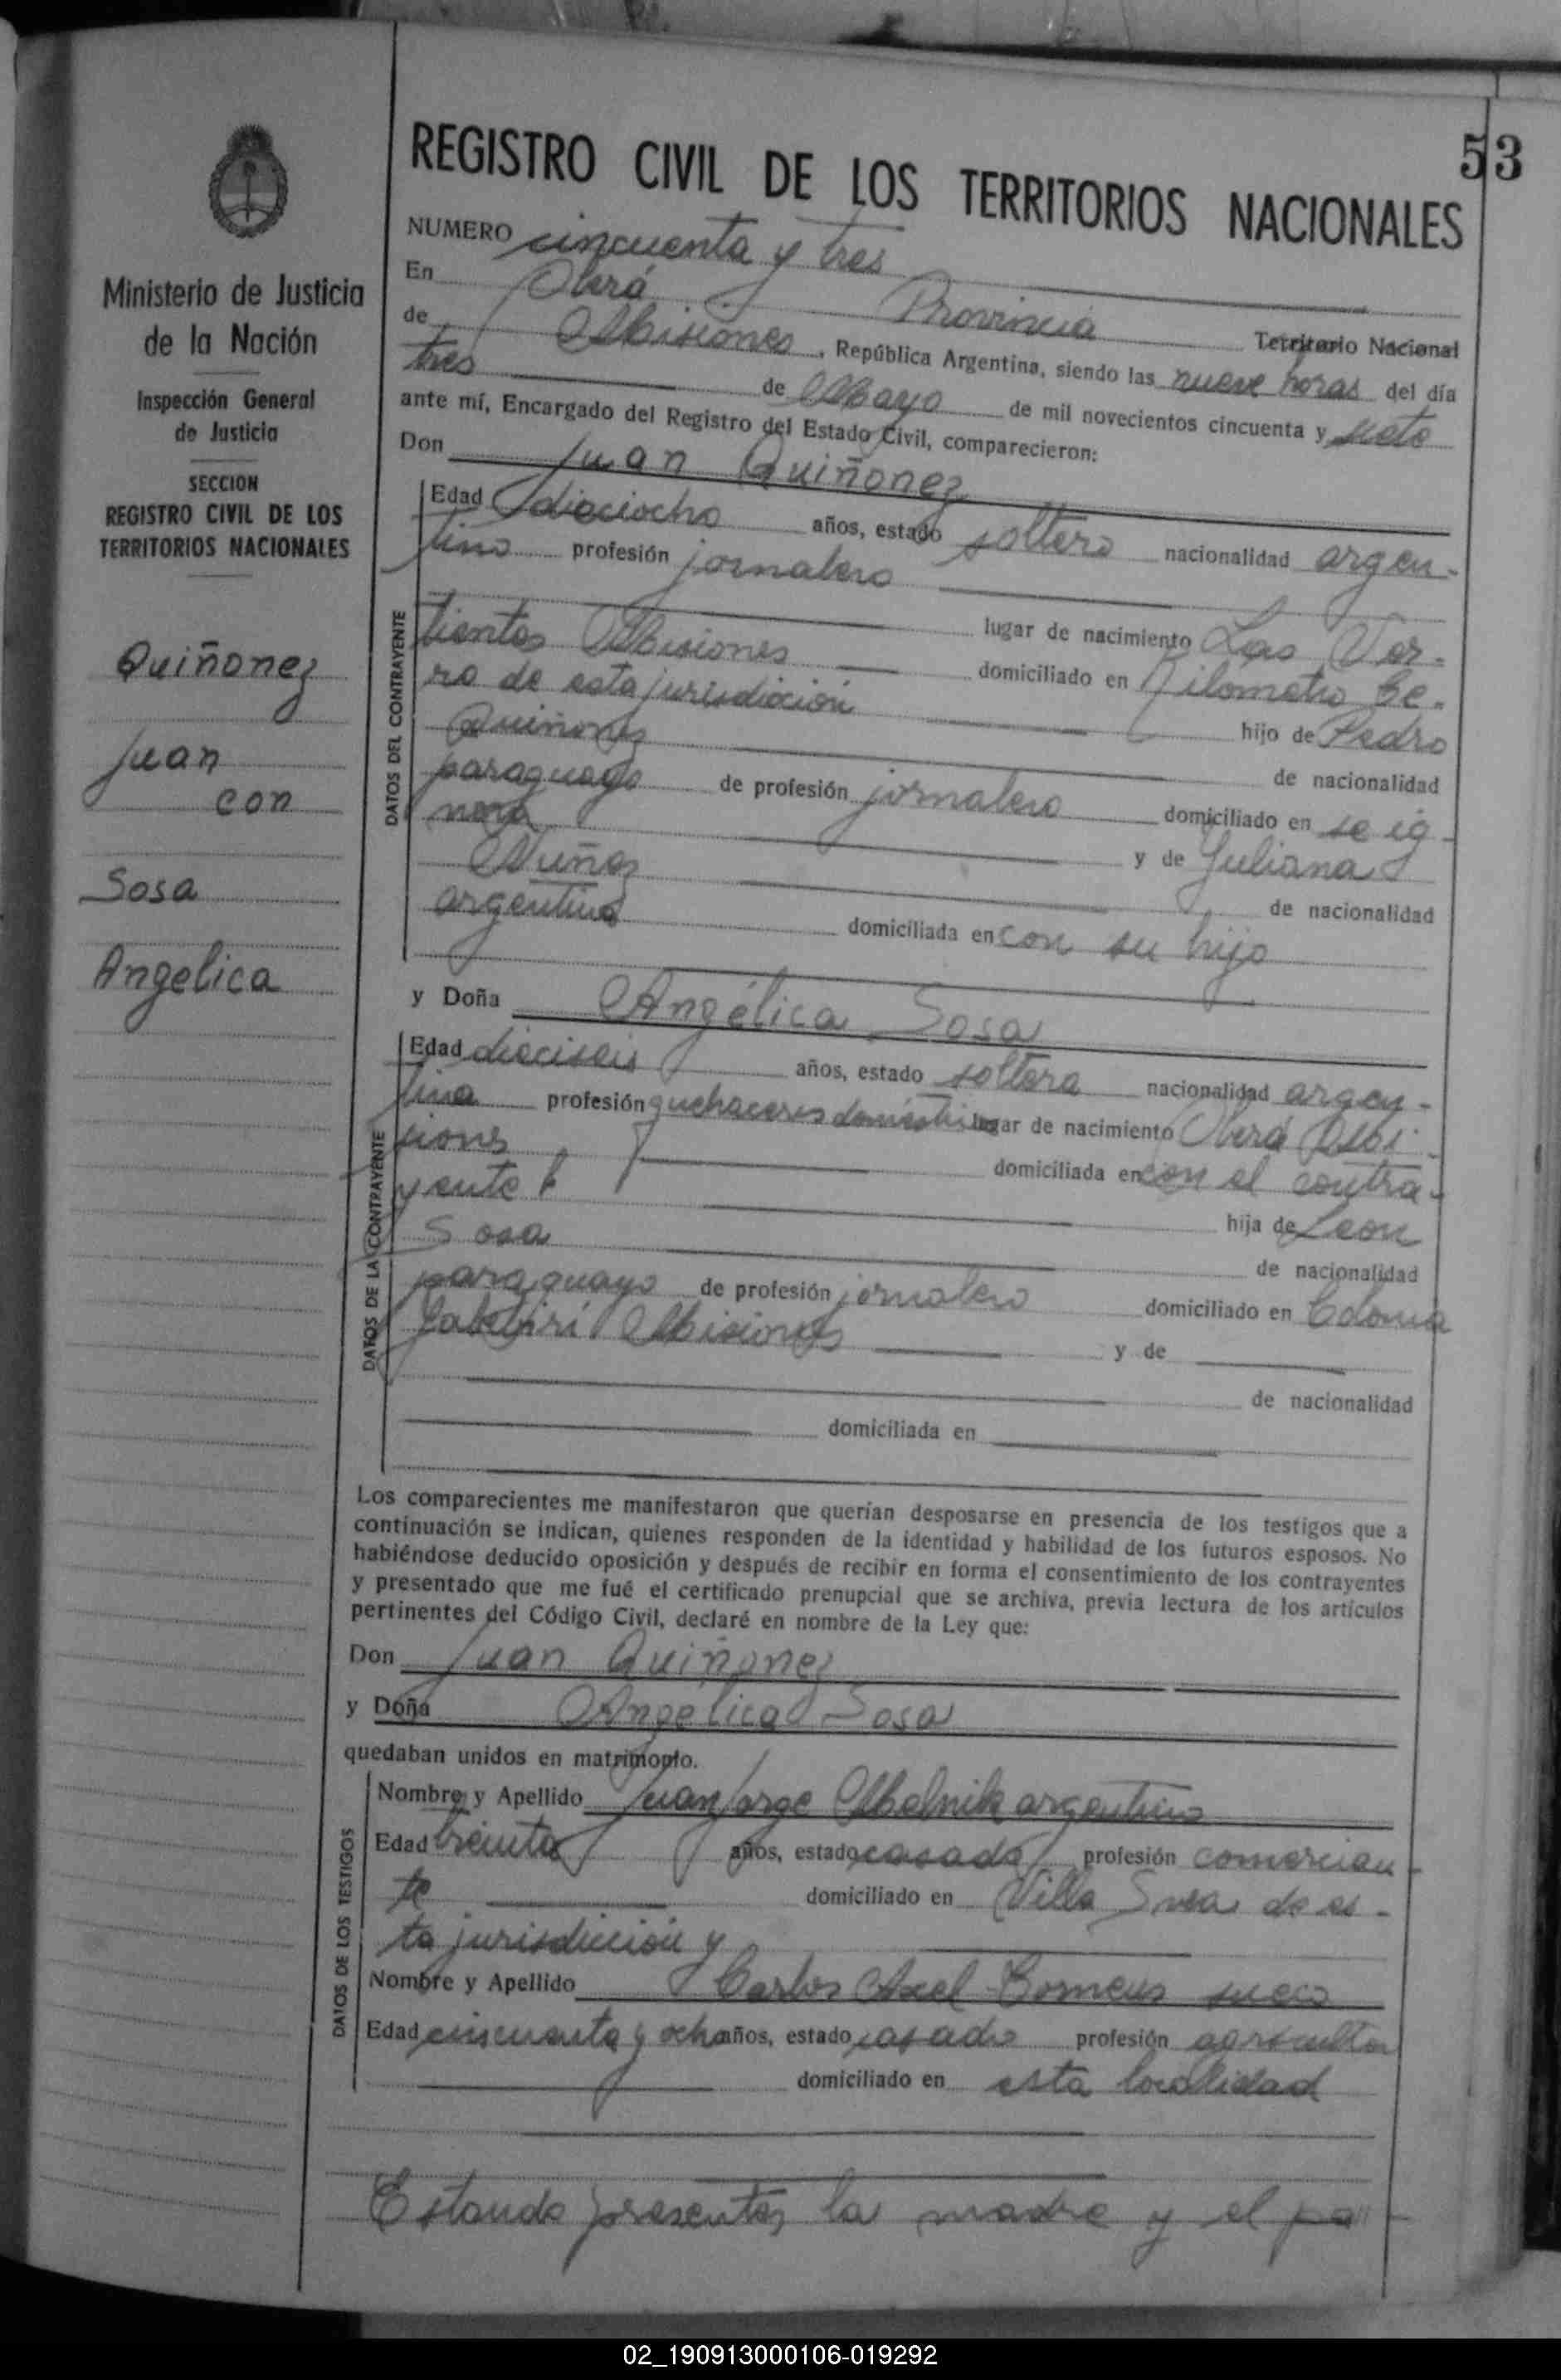 53
REGISTRO CIVIL DE LOS TERRITORIOS NACIONALES
Ministerio de Justicia
de la Nación
Inspección General
de Justicia
SECCION
REGISTRO CIVIL DE LOS
TERRITORIOS NACIONALES
Quiñonez
Juan
con
Sosa
Angelica
NUMERO cincuenta y tres
En Oberá Provincia Territorio Nacional
de Misiones, República Argentina, siendo las nueve horas del día
tres de Mayo de mil novecientos cincuenta y siete
ante mí, Encargado del Registro del Estado Civil, comparecieron:
Don Juan Quiñonez
DATOS DEL CONTRAYENTE
Edad dieciocho años, estado soltero nacionalidad argen-
tino profesión jornalero
lugar de nacimiento Las Ver-
tientes Misiones domiciliado en Kilometro Ce-
ro de esta jurisdicción hijo de Pedro
Quiñonez de nacionalidad
paraguayo de profesión jornalero domiciliado en se ig-
nora y de Juliana
Nuñez de nacionalidad
argentina domiciliada en con su hijo
y Doña Angélica Sosa
DATOS DE LA CONTRAYENTE
Edad dieciseis años, estado soltera nacionalidad argen-
tina profesión quehaceres domésticos lugar de nacimiento Oberá Misi-
siones domiciliada en con el contra-
yente hija de Leon
Sosa de nacionalidad
paraguayo de profesión jornalero domiciliado en Colonia
Yabebirí Misiones y de
de nacionalidad
domiciliada en
Los comparecientes me manifestaron que querían desposarse en presencia de los testigos que a
continuación se indican, quienes responden de la identidad y habilidad de los futuros esposos. No
habiéndose deducido oposición y después de recibir en forma el consentimiento de los contrayentes
y presentado que me fué el certificado prenupcial que se archiva, previa lectura de los artículos
pertinentes del Código Civil, declaré en nombre de la Ley que:
Don Juan Quiñonez
y Doña Angelica Sosa
quedaban unidos en matrimonio.
DATOS DE LOS TESTIGOS
Nombre y Apellido Juan Jorge Melnik argentino
Edad treinta años, estado casado profesión comercian-
te domiciliado en Villa Svea de es-
ta jurisdicción y
Nombre y Apellido Carlos Axel sueco
Edad cincuenta y ocho años, estado casado profesión agricultor
domiciliado en esta localidad
Estando presentes la madre y el pa-
02_190913000106-019292